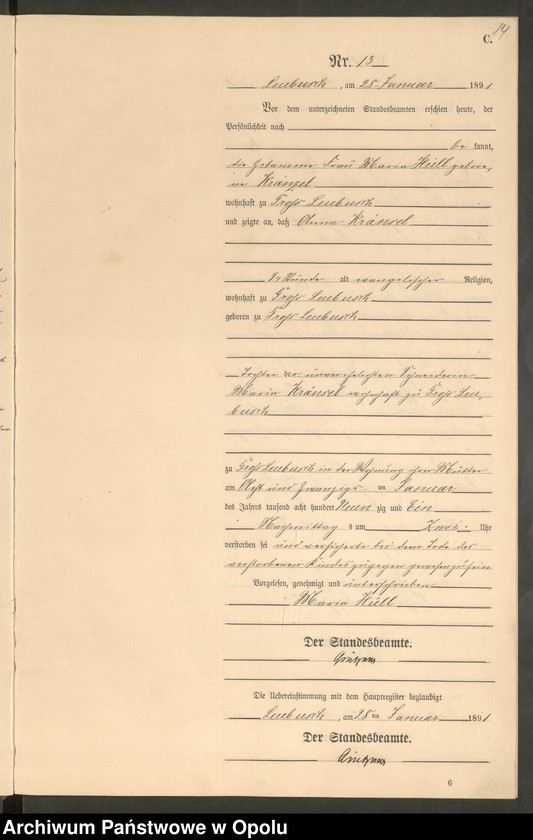 14
C.
Nr. 13
Leubusch, am 28. Januar 1891
Vor dem unterzeichneten Standesbeamten erschien heute, der
Persönlichkeit nach
be kannt,
die Hebamme Frau Maria Hüll gebore,
ne Kränzel
wohnhaft zu Groß Leubusch
und zeigte an, daß Anna Kränsel
Stunde alt evangelischer Religion,
wohnhaft zu Groß Leubusch
geboren zu Groß Leubusch
Tochter der unverehelichten Schneiderin
Maria Kränsel wohnhaft zu Groß Leu,
busch
zu Groß Leubusch in der Wohnung ihrer Mutter
am Acht und Zwanzigs ten Januar
des Jahres tausend acht hundert Neun zig und Ein
Nachmittag s um Zwei Uhr
verstorben sei und versicherte bei dem Tode des
verstorbenen Kindes zugegen gewesen zu sein
Vorgelesen, genehmigt und unterschrieben
Maria Hüll
Der Standesbeamte.
Die Uebereinstimmung mit dem Hauptregister beglaubigt
Leubusch, am 28 ten Januar 1891
Der Standesbeamte.
6
Archiwum Państwowe w Opolu